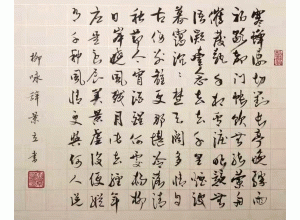 寒蟬淒切對長亭晚驟雨
初歇都門帳飲無緒蘭舟
催發執手相看淚眼竟無
語凝噎念去去千里煙波
暮靄沉沉楚天闊多情自
古傷離別更那堪冷落清
秋節今宵酒醒何處楊柳
岸曉風殘月此去經年
應是良辰美景虛設便縱
有千種風情更與何人說
柳咏詞葉立書